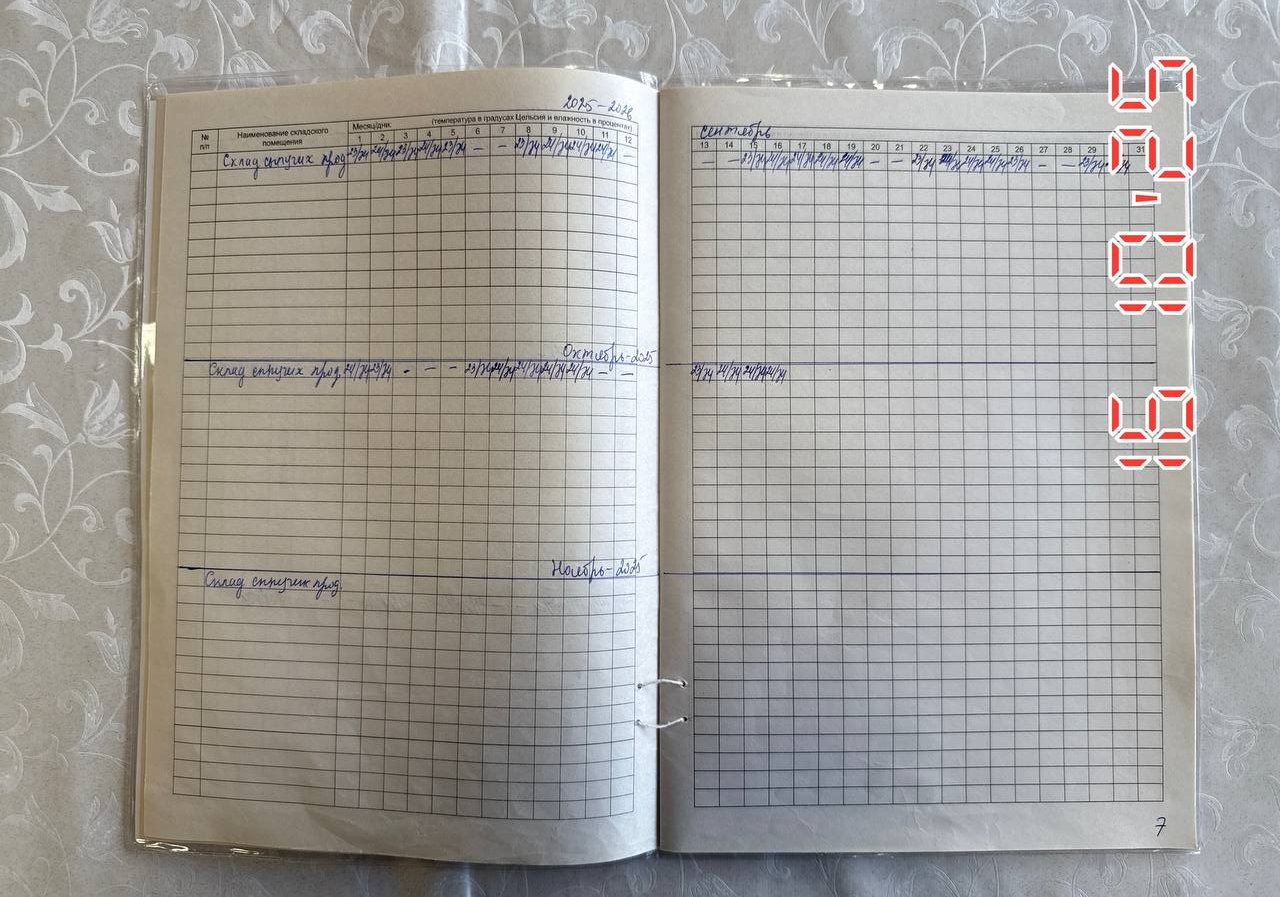 2025-2026
№ п/п
Наименование складского помещения
Месяц/дни. (температура в градусах Цельсия и влажность в процентах)
2 3 4 5 6 7 8 9 10 11 12
Склад сыпучих прод 23/74 24/74 23/74 24/74 23/74 - - 23/74 24/74 24/74 24/74 -
сентябрь
13 14 15 16 17 18 19 20 21 22 23 24 25 26 27 28 29 31
- - 23/74 24/74 24/74 24/74 24/74 - - 23/74 24/74 24/74 23/74 - - 23/74
Октябрь-2025
Склад сыпучих прод. 24/74 23/74 - - - 23/74 24/74 24/74 24/74 24/74 - -
23/74 24/74 24/74 24/74
Ноябрь-2025
Склад сыпучих прод.
7